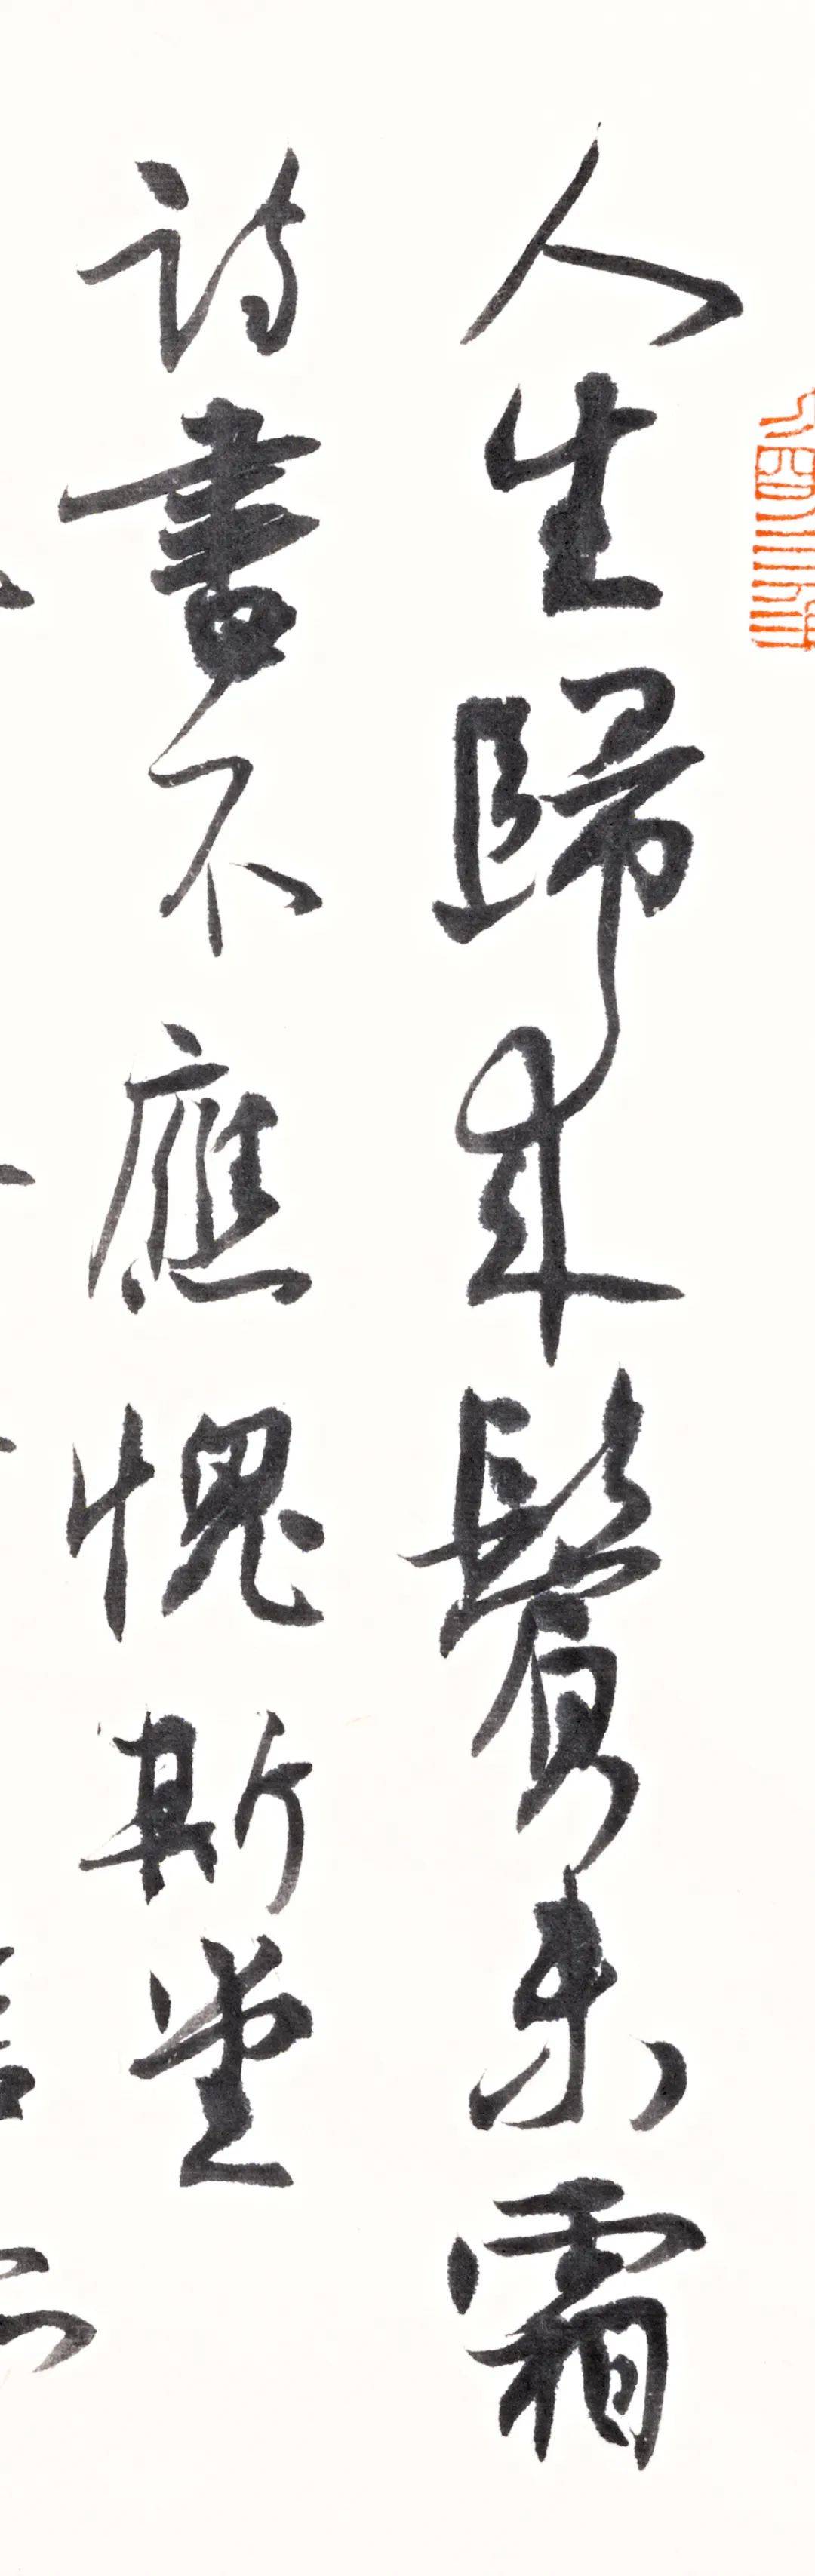 人生歸年鬢未霜
詩書不應愧斯堂